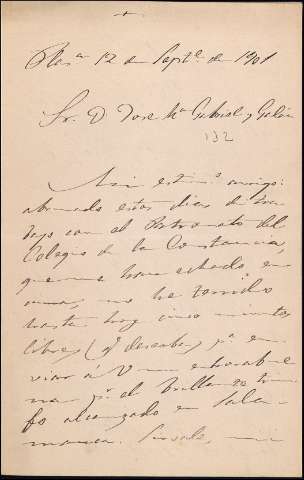 Plas.ª 12 de Septe. de 1901
Sr. D José Mª Gabriel y Galán
132
Mi estimº amigo:
abrumado estos días de tra
bajo con el Patronato del
Colegio de la Constancia,
que me han echado en
cima, no he tenido
hasta hoy cinco minutos
libres (q deseaba) pª en
viar a V mi enhorabue
na pr el brillante triun
fo alcanzado en Sala
manca. mi